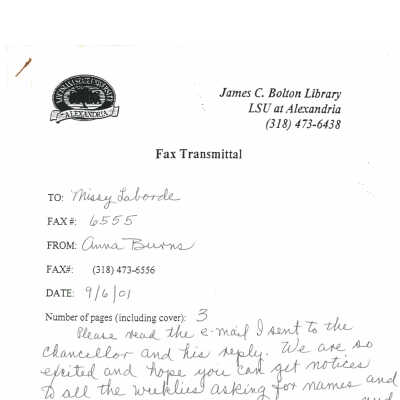 LOUISIANA STATE UNIVERSITY
ALEXANDRIA
James C. Bolton Library
LSU at Alexandria
(318) 473-6438
Fax Transmittal
TO: Missy Laborde
FAX #: 6555
FROM: Anna Burns
FAX#: (318) 473-6556
DATE: 9/6/01
Number of pages (including cover): 3
Please read the e-mail I sent to the
chancellor and his reply. We are so
excited and hope you can get notices
to all the weeklies asking for names and
and